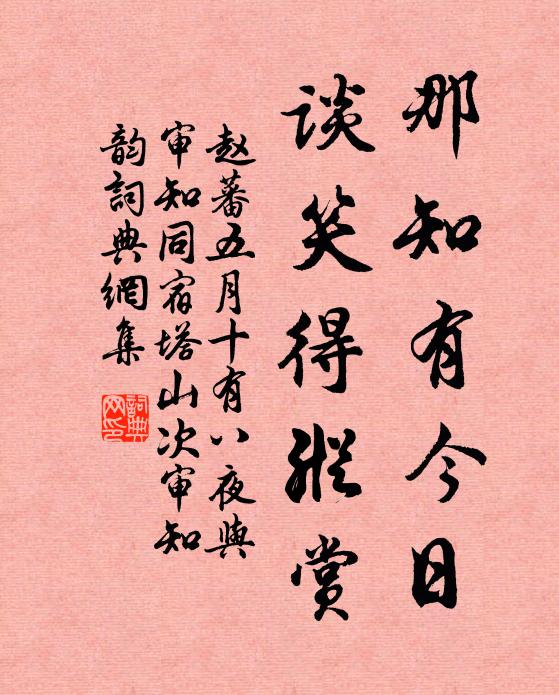 那知有今日
谈笑得縱賞
赵蕃五月十有八夜與
审知同宿塔山次审知
韵詞典網集
詞典网印